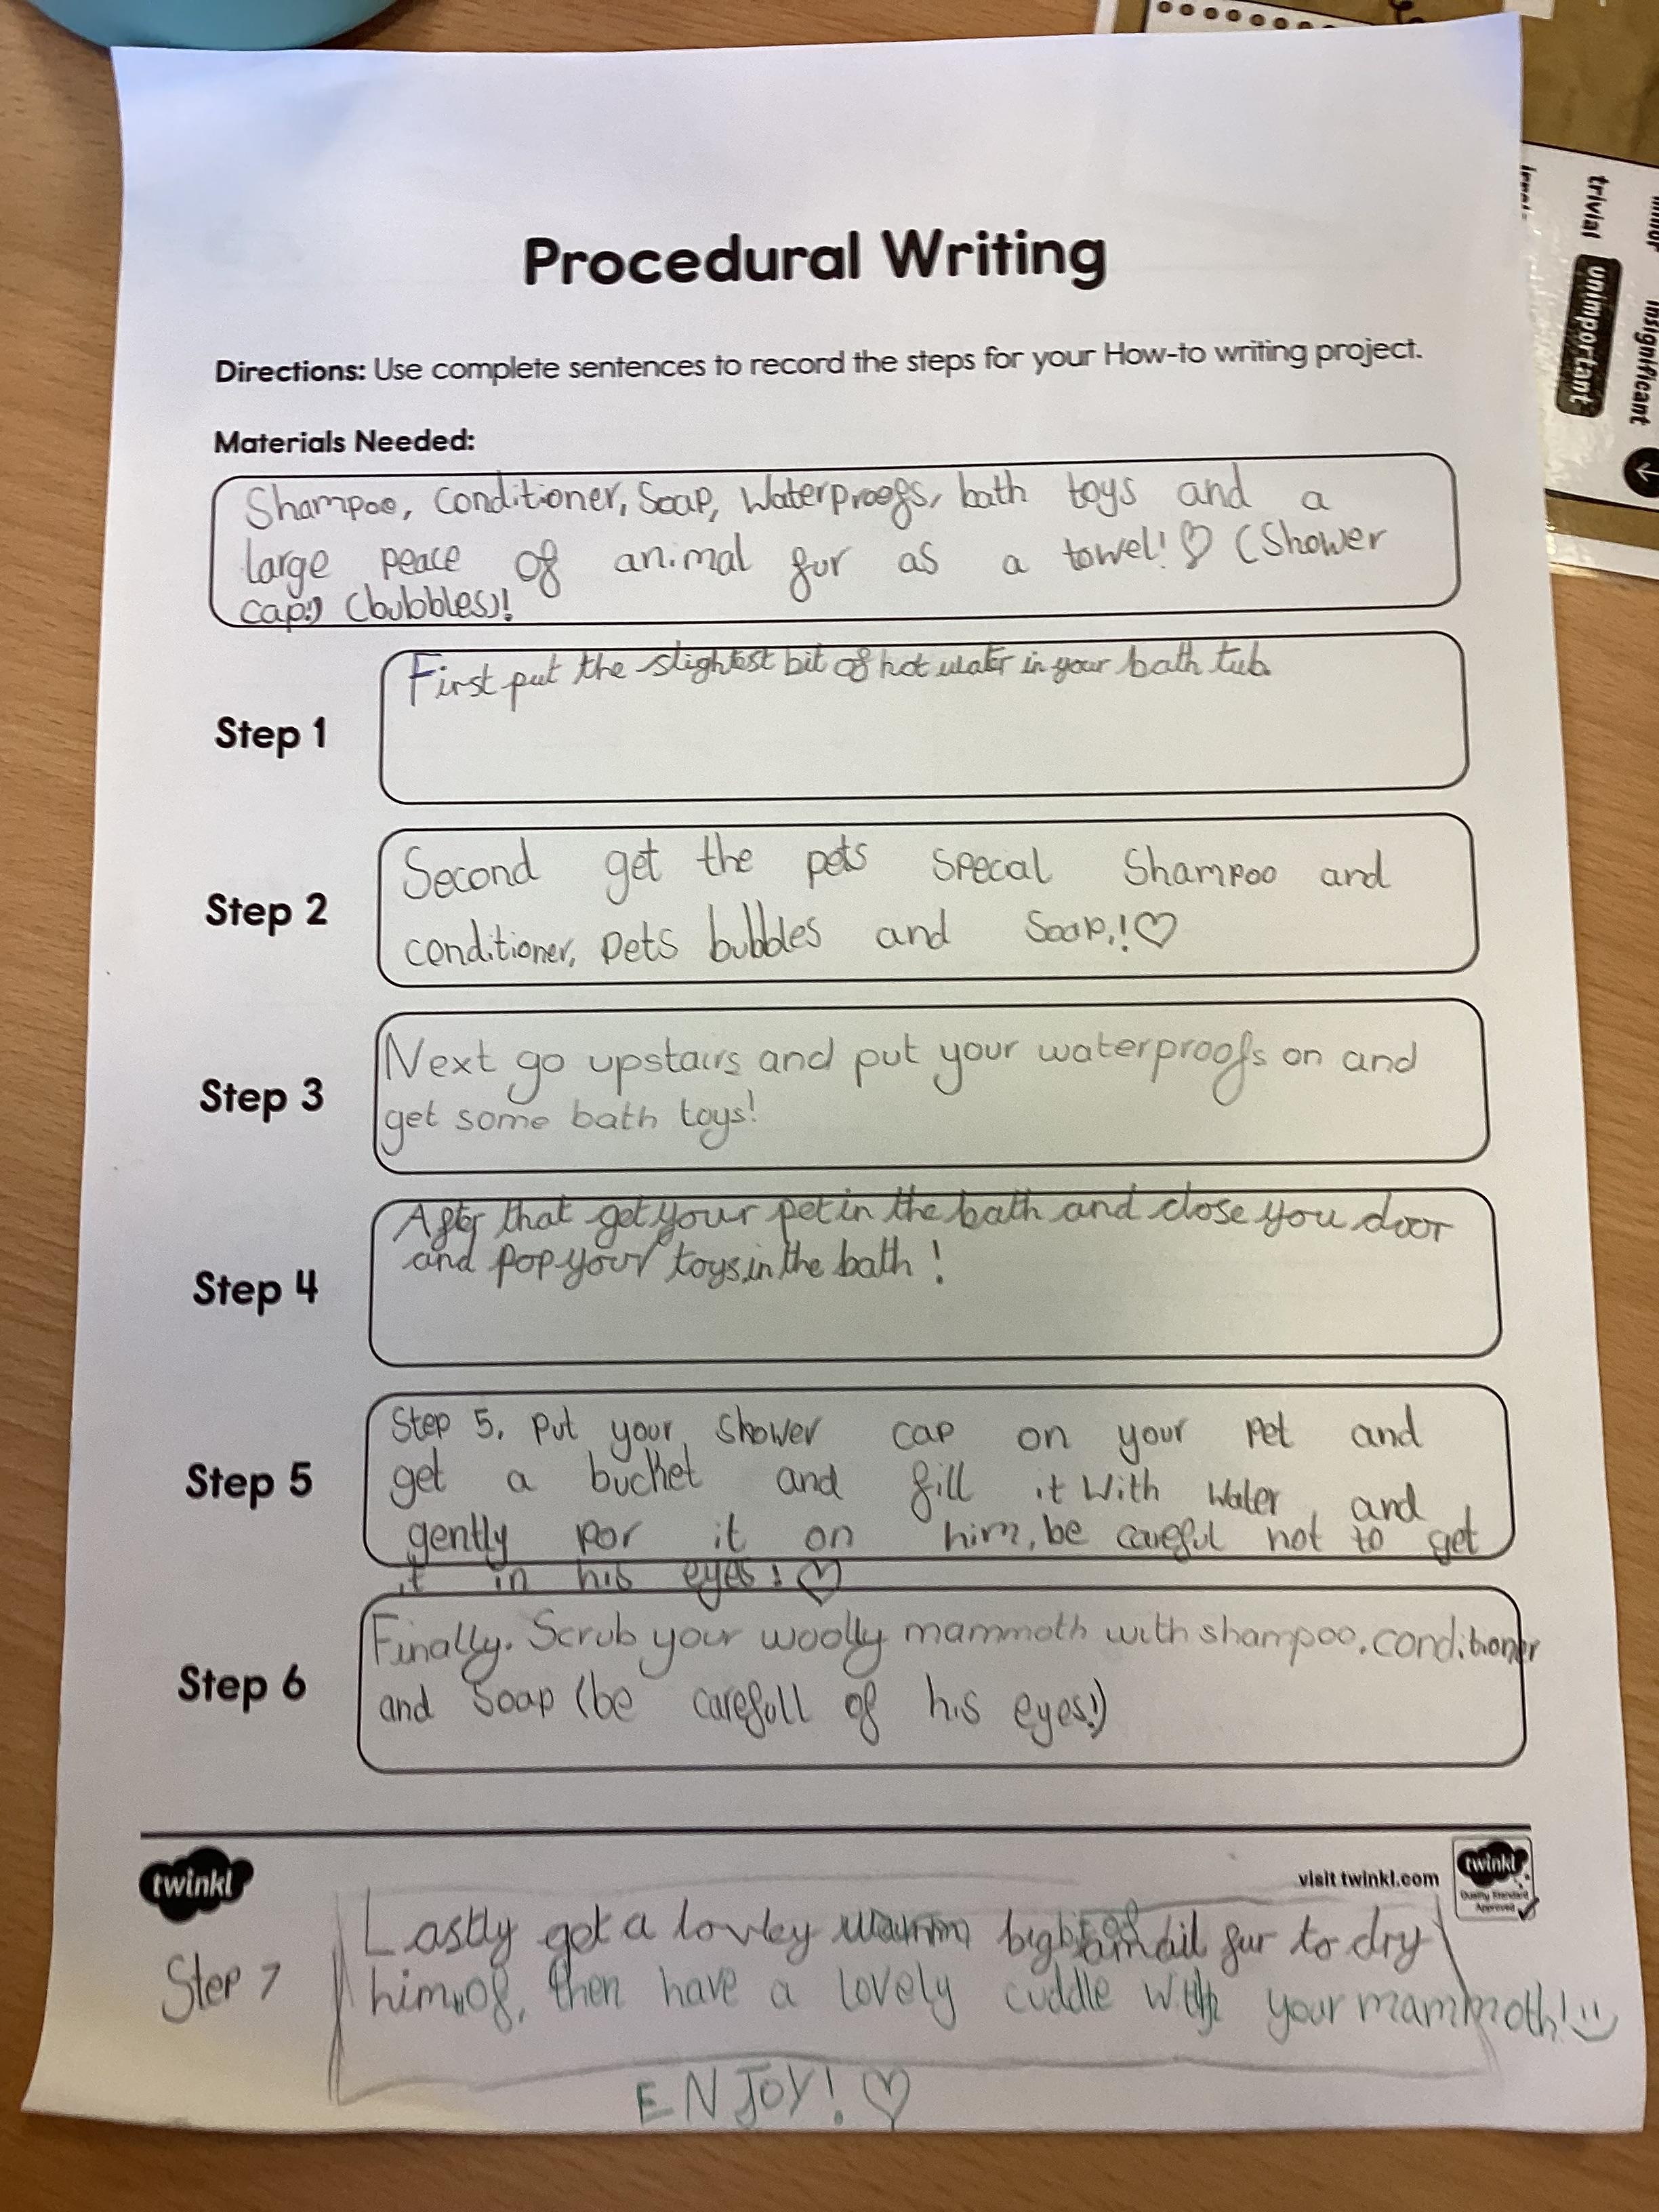 Procedural Writing
Directions: Use complete sentences to record the steps for your How-to writing project.
Materials Needed:
Shampoo, conditioner, Soap, Waterproofs, bath toys and a
large peace of animal fur as a towel! ♡ (Shower
cap!) (bubbles)!
Step 1
First put the slightest bit of hot water in your bath tub.
Step 2
Second get the pets special Shampoo and
conditioner, pets bubbles and Soap,!♡
Step 3
Next go upstairs and put your waterproofs on and
get some bath toys!
Step 4
After that get your pet in the bath and close you door
and pop your toys in the bath!
Step 5
Step 5, Put your shower cap on your pet and
get a bucket and fill it with water and
gently por it on him, be careful not to get
it in his eyes! ♡
Step 6
Finally. Scrub your woolly mammoth with shampoo, conditioner
and Soap (be carefull of his eyes!)
twinkl
visit twinkl.com
twinkl
Quality Standard
Approved
Step 7
Lastly get a lovley big bit of fur to dry
him of, then have a lovely cuddle with your mammoth! :)
ENJOY! ♡
trivial
unimportant
insignificant